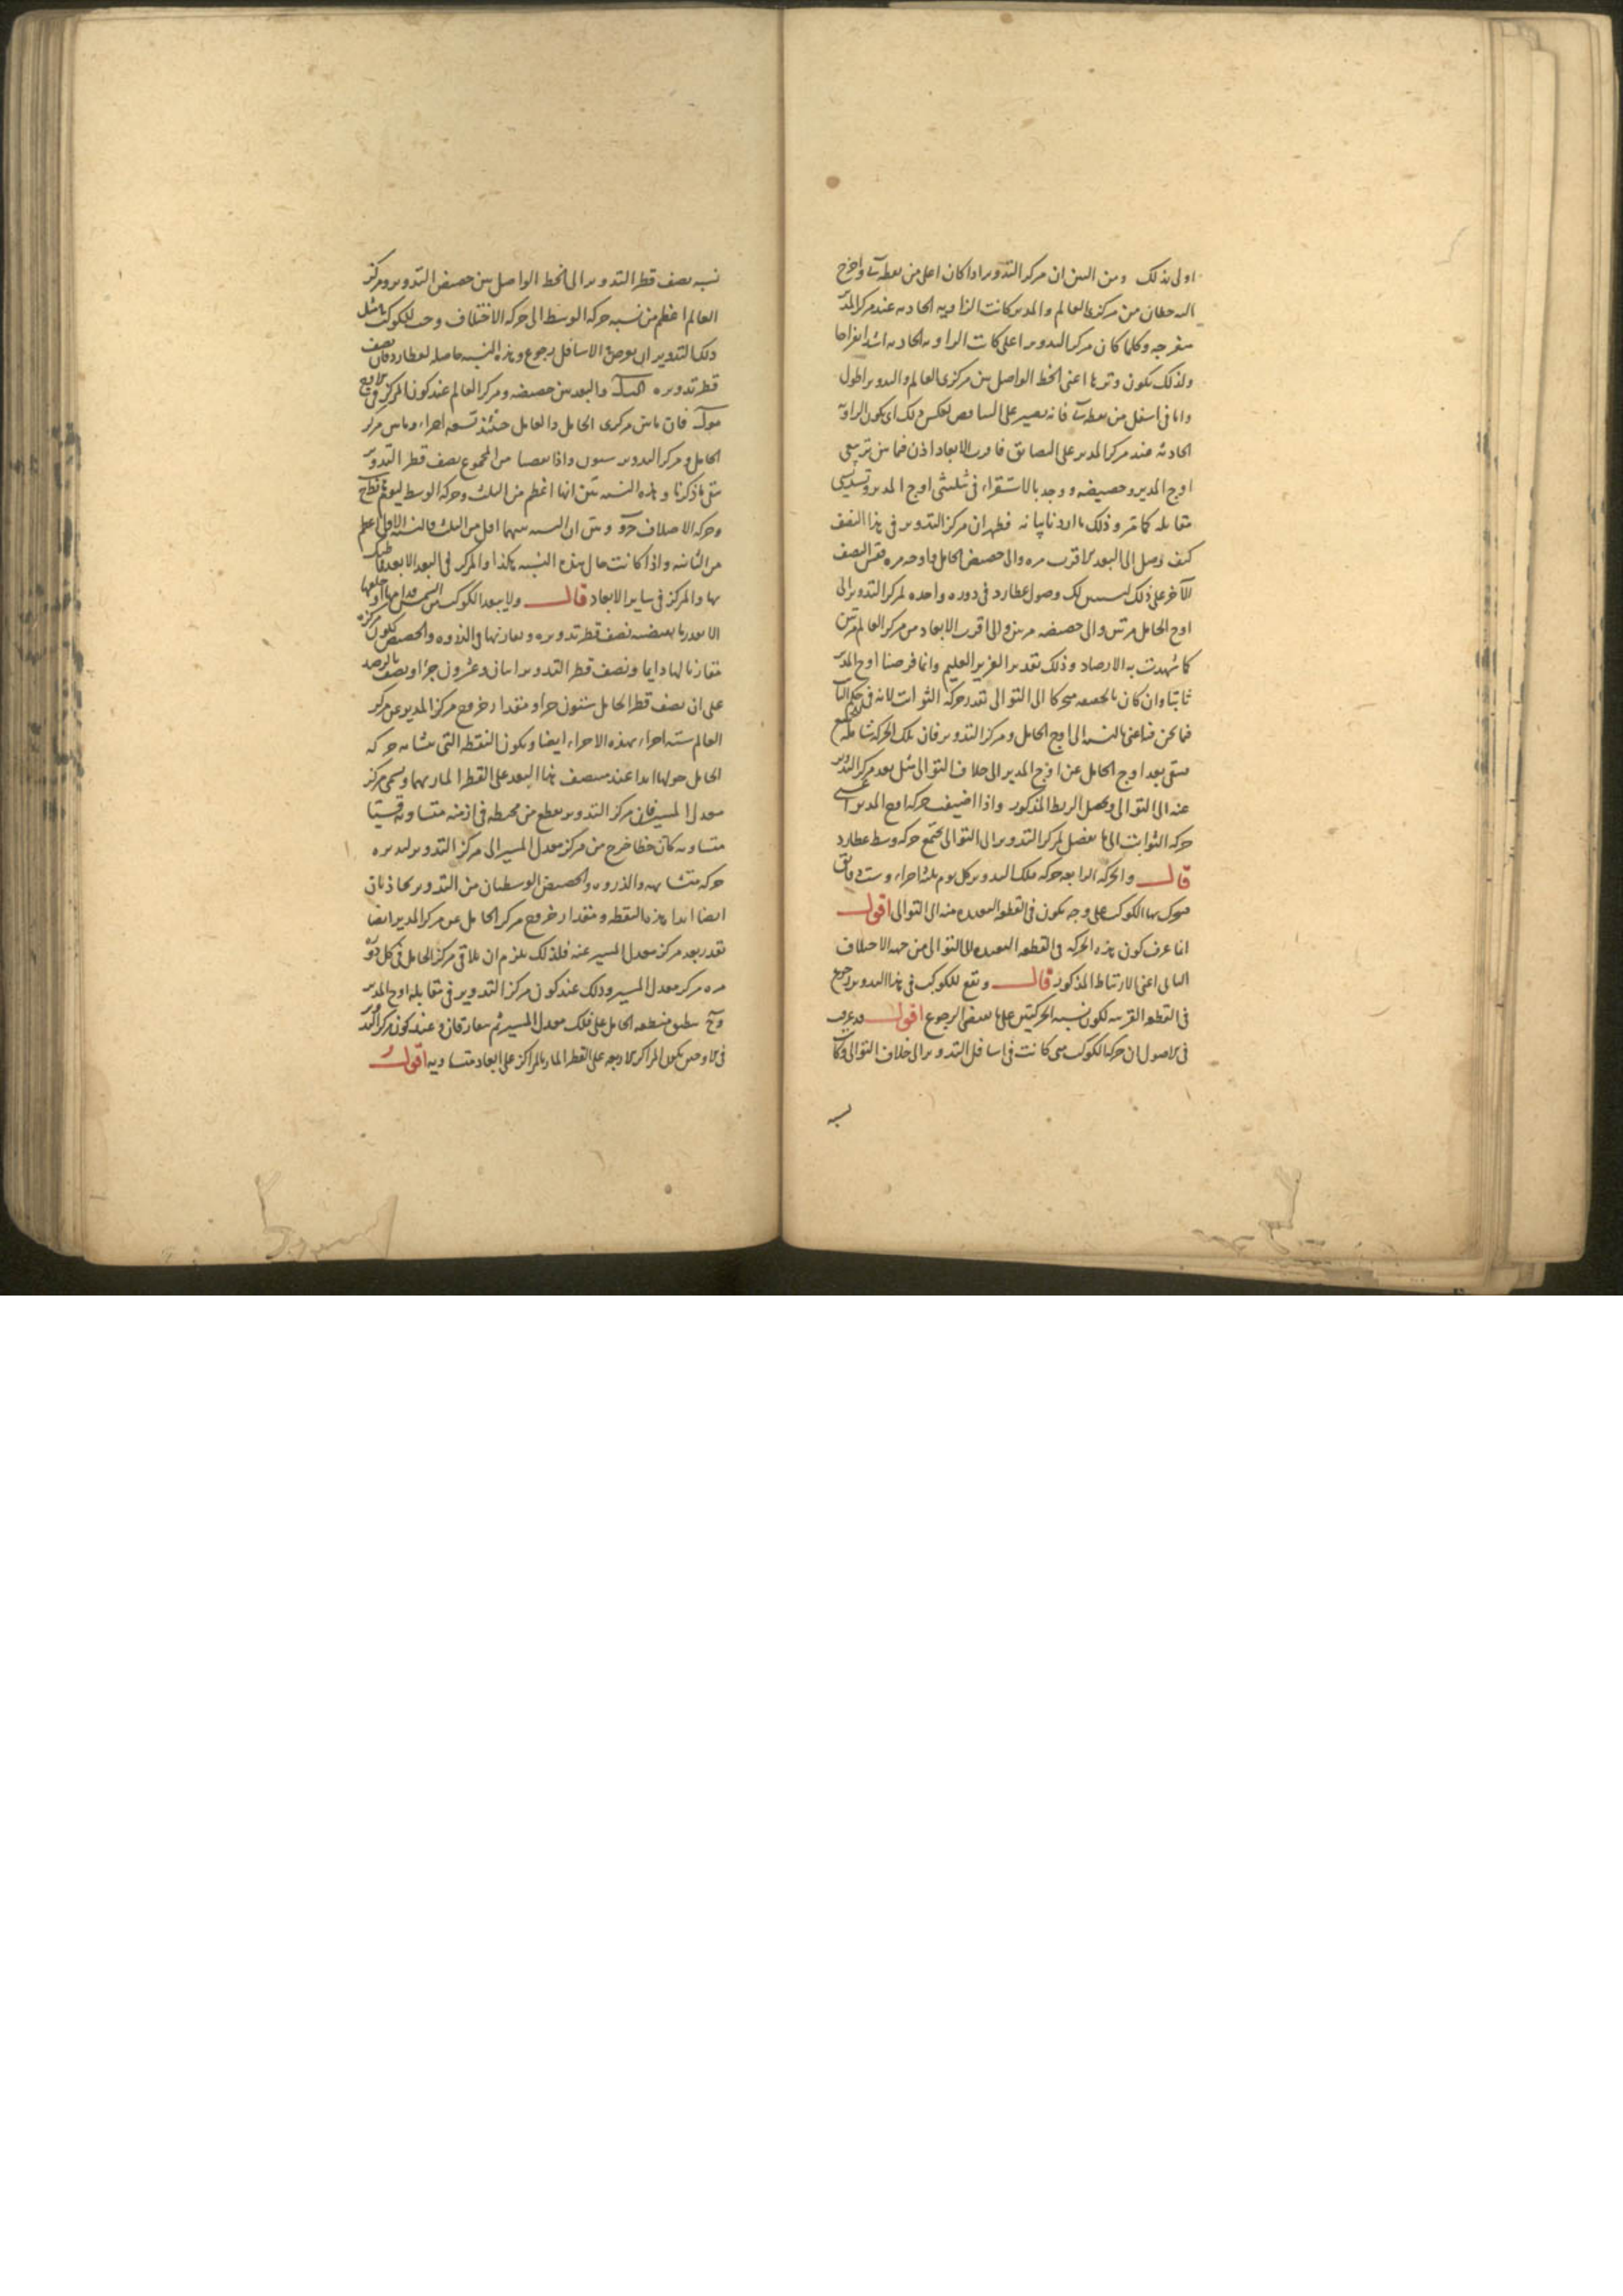 اولى بذلك ومن البين ان مركز التدوير اذا كان اعلى من نقطة واخرج
اليه خطان من مركزى العالم والمدير كانت الزاويه الحادثه عند مركز المدير
منفرجه وكلما كان مركز التدوير اعلى كانت الزاويه الحادثه اشد انفراجا
ولذلك تكون وترها اعنى الخط الواصل بين مركزى العالم والتدوير اطول
واما فى اسفل من نقطة فانه يصير على التناقص بعكس ذلك اى يكون الزاويه
الحادثه عند مركز المدير على التضايق فاقرب الابعاد اذن فيما بين تربيعى
اوج المدير وحضيضه ووجد بالاستقراء فى تثليثى اوج المدير وتسديسى
مقابله كما مر وذلك ما اردنا بيانه فظهر ان مركز التدوير فى هذا النصف
كيف وصل الى البعد الاقرب مره والى حضيض الحامل واوجه مره فقس النصف
الآخر على ذلك ليتبين لك وصول عطارد فى دوره واحده لمركز التدوير الى
اوج الحامل مرتين والى حضيضه مرتين والى اقرب الابعاد من مركز العالم مرتين
كما شهدت به الارصاد وذلك تقدير العزيز العليم وانما فرضنا اوج المدير
ثابتا وان كان بالحقيقه متحركا الى التوالى بقدر حركة الثوابت لانه فى حكم الثابت
فيما نحن فيه اعنى بالنسبه الى اوج الحامل ومركز التدوير فان تلك الحركه شامله
فيبقى بعد اوج الحامل عن اوج المدير الى خلاف التوالى مثل بعد مركز التدوير
عنه الى التوالى ويحصل الربط المذكور واذا اضيف حركه اوج المدير اعنى
حركه الثوابت الى ما يفضل لمركز التدوير الى التوالى يجتمع حركه وسط عطارد
قال والحركه الرابعه حركه فلك التدوير كل يوم ثلثه اجزاء وست دقائق
يتحرك بها الكوكب على وجه يكون فى القطعه البعيده منه الى التوالى اقول
انما عرف كون هذه الحركه فى القطعه البعيده الى التوالى من جهه الاختلاف
الثانى اعنى الارتباط المذكور قال ويقع للكوكب فى هذا التدوير رجوع
فى القطعه القريبه لكون نسبه الحركتين على ما يقتضى الرجوع اقول قد عرف
فى الاصول ان حركه الكوكب متى كانت فى اسافل التدوير الى خلاف التوالى وكانت
نسبه
نسبه نصف قطر التدوير الى الخط الواصل بين حضيض التدوير ومركز
العالم اعظم من نسبه حركه الوسط الى حركه الاختلاف وجب للكوكب مثل
ذلك التدوير ان يعرض فى الاسافل رجوع وهذه النسبه حاصله لعطارد فان نصف
قطر تدويره والبعد بين حضيضه ومركز العالم عند كون المركز فى الاوج
فان ما بين مركزى الحامل والعالم حينئذ تسعه اجزاء وما بين مركز
الحامل ومركز التدوير ستون واذا نقصنا من المجموع نصف قطر التدوير
بقى ما ذكرنا وهذه النسبه تبين انها اعظم من الثلث وحركه الوسط ليوم
وحركه الاختلاف وبين ان النسبه بينهما اقل من الثلث فالنسبه الاولى اعظم
من الثانيه واذا كانت حال هذه النسبه هكذا والمركز فى البعد الابعد فما ظنك
بها والمركز فى ساير الابعاد قال ولا يبعد الكوكب من الشمس قدامها او خلفها
الا بقدر ما يقتضيه نصف قطر تدويره ويقارنها فى الذروه والحضيض لكون مركزه
مقارنا لها دايما ونصف قطر التدوير اثنان وعشرون جزءا ونصف بالرصد
على ان نصف قطر الحامل ستون جزءا ومقدار خروج مركز المدير عن مركز
العالم سته اجزاء بهذه الاجزاء ايضا ويكون النقطه التى يتشابه حركه
الحامل حولها ابدا عند منتصف هذا البعد على القطر المار بهما ويسمى مركز
معدل المسير فان مركز التدوير يقطع من محيطه فى ازمنه متساويه قسيا
متساويه كان خطا خرج من مركز معدل المسير الى مركز التدوير يديره
حركه متشابهه والذروه والحضيض الوسطيان من التدوير يحاذيان
ايضا ابدا هذه النقطه ومقدار خروج مركز الحامل عن مركز المدير ايضا
بقدر بعد مركز معدل المسير عنه فلذلك يلزم ان يلاقى مركز الحامل فى كل دوره
مره مركز معدل المسير وذلك عند كون مركز التدوير فى مقابله اوج المدير
وح ينطبق منطقه الحامل على فلك معدل المسير ثم يفارقان وعند كون مركز التدوير
فى الاوجين يكون المراكز الاربعه على القطر المار بالمراكز على ابعاد متساويه اقول